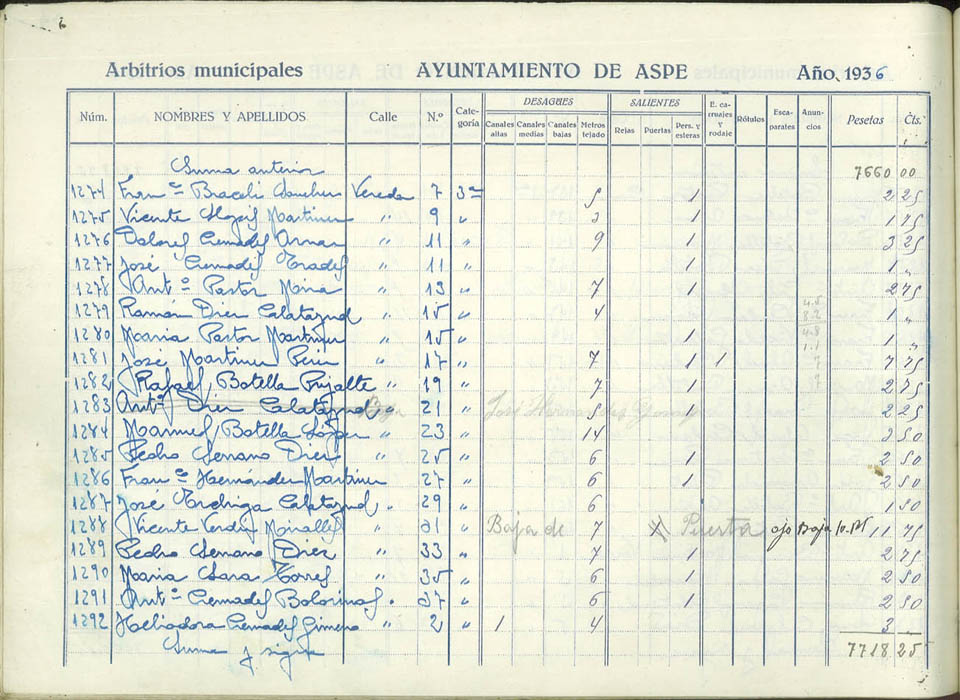 Arbitrios municipales AYUNTAMIENTO DE ASPE Año, 1936
Núm. NOMBRES Y APELLIDOS Calle N.º Categoría DESAGÜES Canales altas Canales medias Canales bajas Metros tejado SALIENTES Rejas Puertas Pers. y esteras E. carruajes y rodaje Rótulos Escaparates Anuncios Pesetas Cts.
Suma anterior 7660 00
1274 Fran.co Vereda 7 3ª 5 1 2 25
1275 Vicente Martinez " 9 " 3 1 1 75
1276 Dolores Cremades " 11 " 9 1 3 25
1277 José Cremades " 11 " 1 1 "
1278 Ant.º Pastor Mira " 13 " 7 1 2 75
1279 Ramón Diez Calatayud " 15 " 4 1 "
1280 Maria Pastor Martinez " 15 " 1 1 "
1281 José Martinez " 17 " 7 1 1 7 75
1282 Rafael Botella Pujalte " 19 " 7 1 2 75
1283 Ant.º Diez Calatayud " 21 " José 5 1 2 25
1284 Manuel Botella López " 23 " 14 3 50
1285 Pedro Serrano Diez " 25 " 6 1 2 50
1286 Fran.co Hernández Martinez " 27 " 6 1 2 50
1287 José Calatayud " 29 " 6 1 50
1288 Vicente Verdú Miralles " 31 Baja de 7 Puerta ojo Baja 11 75
1289 Pedro Serrano Diez " 33 " 7 1 2 75
1290 Maria Torres " 35 " 6 1 2 50
1291 Ant.º Cremades " 37 " 6 1 2 50
1292 Heliodora Cremades Gimeno " 2 " 1 4 3 "
Suma y sigue 7718 25